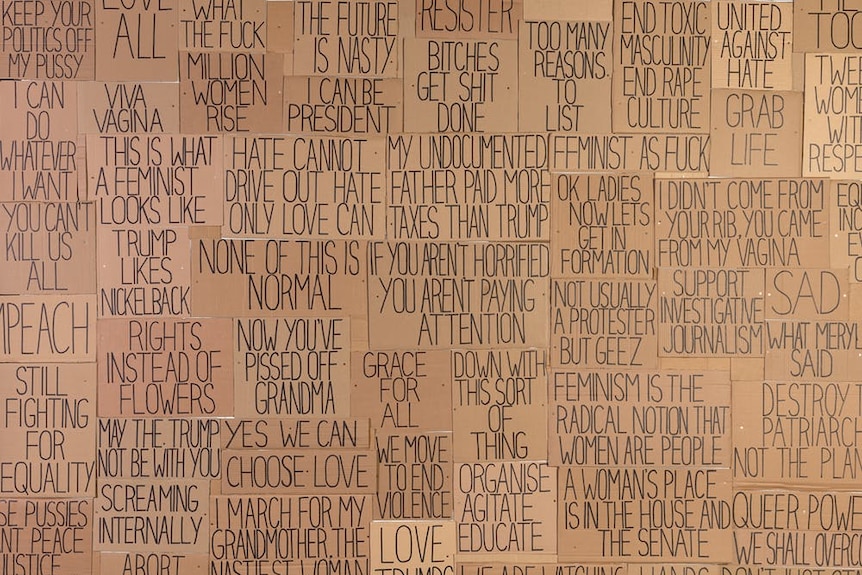 KEEP YOUR
POLITICS OFF
MY PUSSY
LOVE
ALL
WHAT
THE FUCK
THE FUTURE
IS NASTY
RESISTER
TOO MANY
REASONS
TO
LIST
END TOXIC
MASCULINITY
END RAPE
CULTURE
UNITED
AGAINST
HATE
TOO
I CAN
DO
WHATEVER
I WANT
VIVA
VAGINA
MILLION
WOMEN
RISE
I CAN BE
PRESIDENT
BITCHES
GET SHIT
DONE
GRAB
LIFE
WOM
WIT
RESPE
THIS IS WHAT
A FEMINIST
LOOKS LIKE
HATE CANNOT
DRIVE OUT HATE
ONLY LOVE CAN
MY UNDOCUMENTED
FATHER PAID MORE
TAXES THAN TRUMP
FEMINIST AS FUCK
OK LADIES
NOW LETS
GET IN
FORMATION
I DIDN'T COME FROM
YOUR RIB, YOU CAME
FROM MY VAGINA
YOU CAN'T
KILL US
ALL
TRUMP
LIKES
NICKELBACK
NONE OF THIS IS
NORMAL
IF YOU AREN'T HORRIFIED
YOU AREN'T PAYING
ATTENTION
NOT USUALLY
A PROTESTER
BUT GEEZ
SUPPORT
INVESTIGATIVE
JOURNALISM
SAD
MPEACH
RIGHTS
INSTEAD OF
FLOWERS
NOW YOU'VE
PISSED OFF
GRANDMA
GRACE
FOR
ALL
DOWN WITH
THIS SORT
OF
THING
FEMINISM IS THE
RADICAL NOTION THAT
WOMEN ARE PEOPLE
WHAT MERYL
SAID
STILL
FIGHTING
FOR
EQUALITY
MAY THE TRUMP
NOT BE WITH YOU
YES WE CAN
CHOOSE LOVE
WE MOVE
TO END
VIOLENCE
DESTROY
PATRIARCH
NOT THE PLAN
SCREAMING
INTERNALLY
I MARCH FOR MY
GRANDMOTHER THE
NASTIEST WOMAN
ORGANISE
AGITATE
EDUCATE
A WOMAN'S PLACE
IS IN THE HOUSE AND
THE SENATE
QUEER POWE
WE SHALL OVERCO
SE PUSSIES
NT PEACE
JUSTICE
ABORT
LOVE
TRUMPS
WE ARE WATCHING
HANDS
DON'T JUST STA